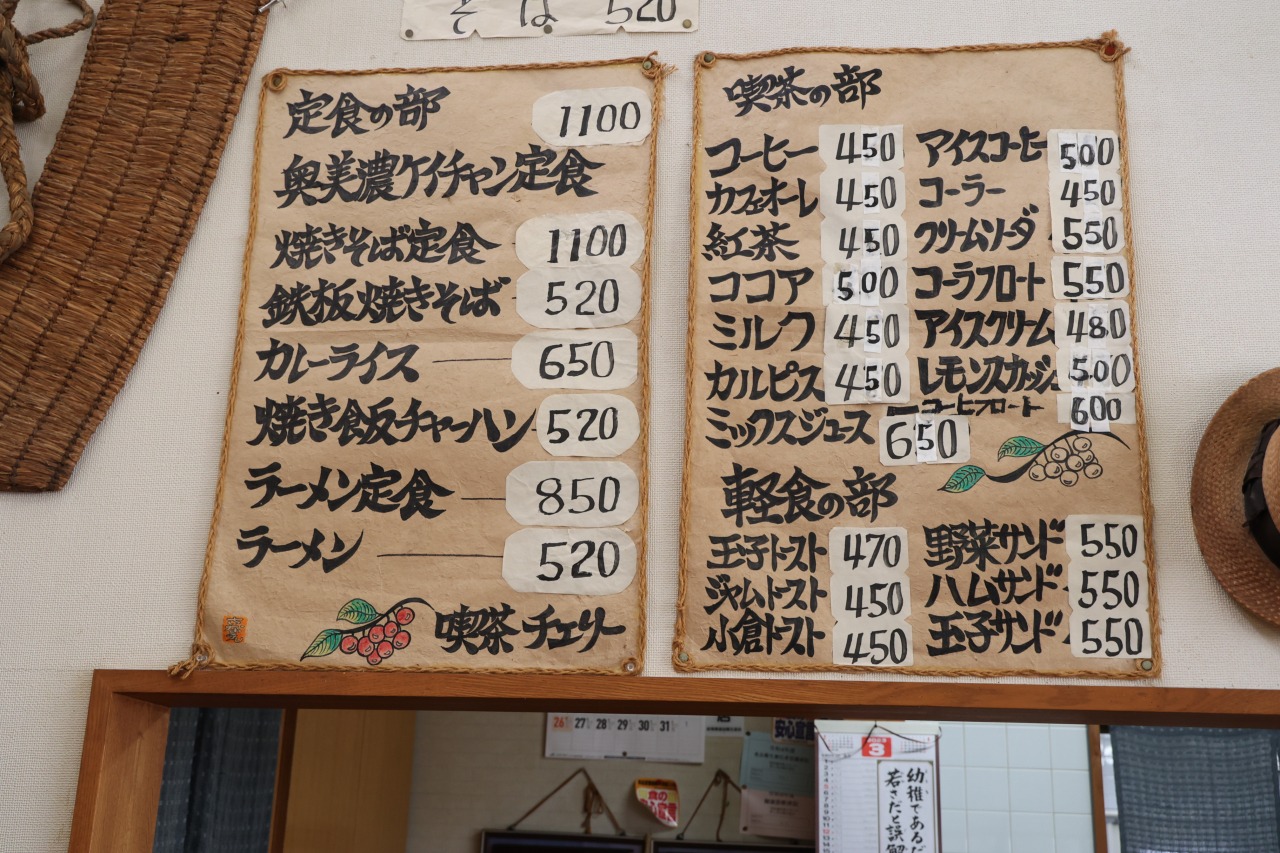 そば 520
定食の部
1100
奥美濃ケイチャン定食
焼きそば定食 1100
鉄板焼きそば 520
カレーライス 650
焼き飯チャーハン 520
ラーメン定食 850
ラーメン 520
喫茶チェリー
喫茶の部
コーヒー 450 アイスコーヒー 500
カフェオーレ 450 コーラー 450
紅茶 450 クリームソーダ 550
ココア 500 コーラフロート 550
ミルク 450 アイスクリーム 480
カルピス 450 レモンスカッシュ 500
コーヒーフロート 600
ミックスジュース 650
軽食の部
玉子トースト 470 野菜サンド 550
ジャムトースト 450 ハムサンド 550
小倉トースト 450 玉子サンド 550
26 27 28 29 30 31
3
幼稚であるだ
若さだと誤解